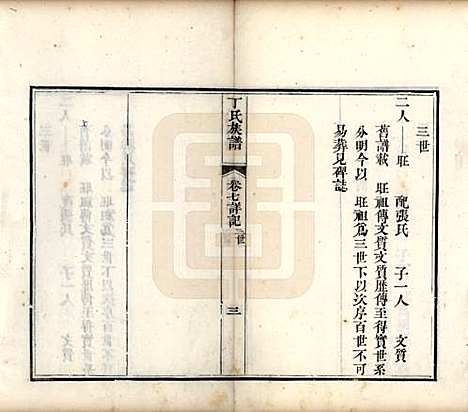 三世
二人——旺 配張氏 子一人 文質
舊譜載 旺祖傳文質文質歷傳至得寶世系
分明今以 旺祖爲三世下以次序百世不可
易葬見碑誌
丁氏族譜
卷七詳記
三世
三